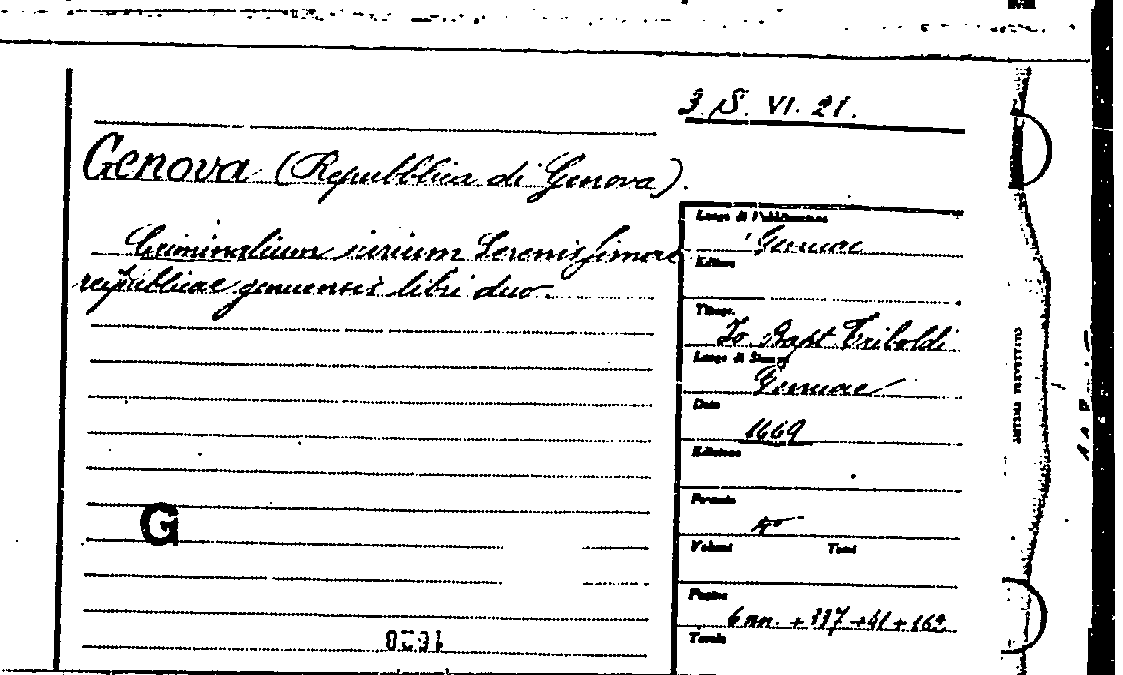 3. S. VI. 21.
Genova (Repubblica di Genova).
Criminalium iurium Serenissimae
reipublicae genuensis libri duo.
Luogo di Pubblicazione
Genuae
Editore
Tipogr.
Jo Bapt Triboldi
Luogo di Stampa
Genuae
Data
1669
Edizione
Formato
4°
Volumi Tomi
Pagine
6 nn. + 337 + 41 +
Tavole
G